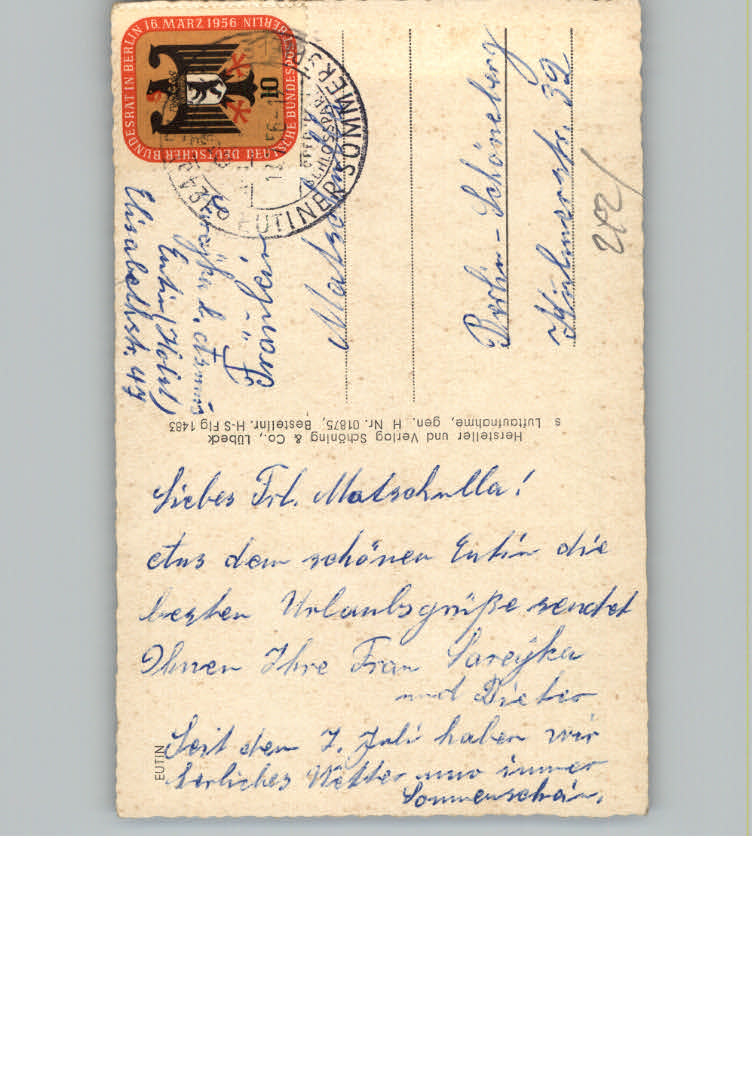 Liebes Frl. Matschulla!
Aus dem schönen Eutin die
besten Urlaubsgrüße sendet
Ihnen Ihre Frau Sareyka
und Dieter
Seit den 7. Juli haben wir
herliches Wetter nur immer
Sonnenschein.
EUTIN
Hersteller und Verlag Schöning & Co., Lübeck
s Luftaufnahme, gen. H Nr. 01875, Bestellnr. H-S Flg 1483
Sareyka b.
Eutin (Holst)
Elisabethstr. 47
Fräulein
Matschulla
Berlin-Schöneberg
Kulmerstr. 39
DEUTSCHER BUNDESRAT IN BERLIN 16. MÄRZ 1956
DEUTSCHE BUNDESPOST BERLIN
10
EUTINER SOMMERSPIELE
SCHLOSSPARK